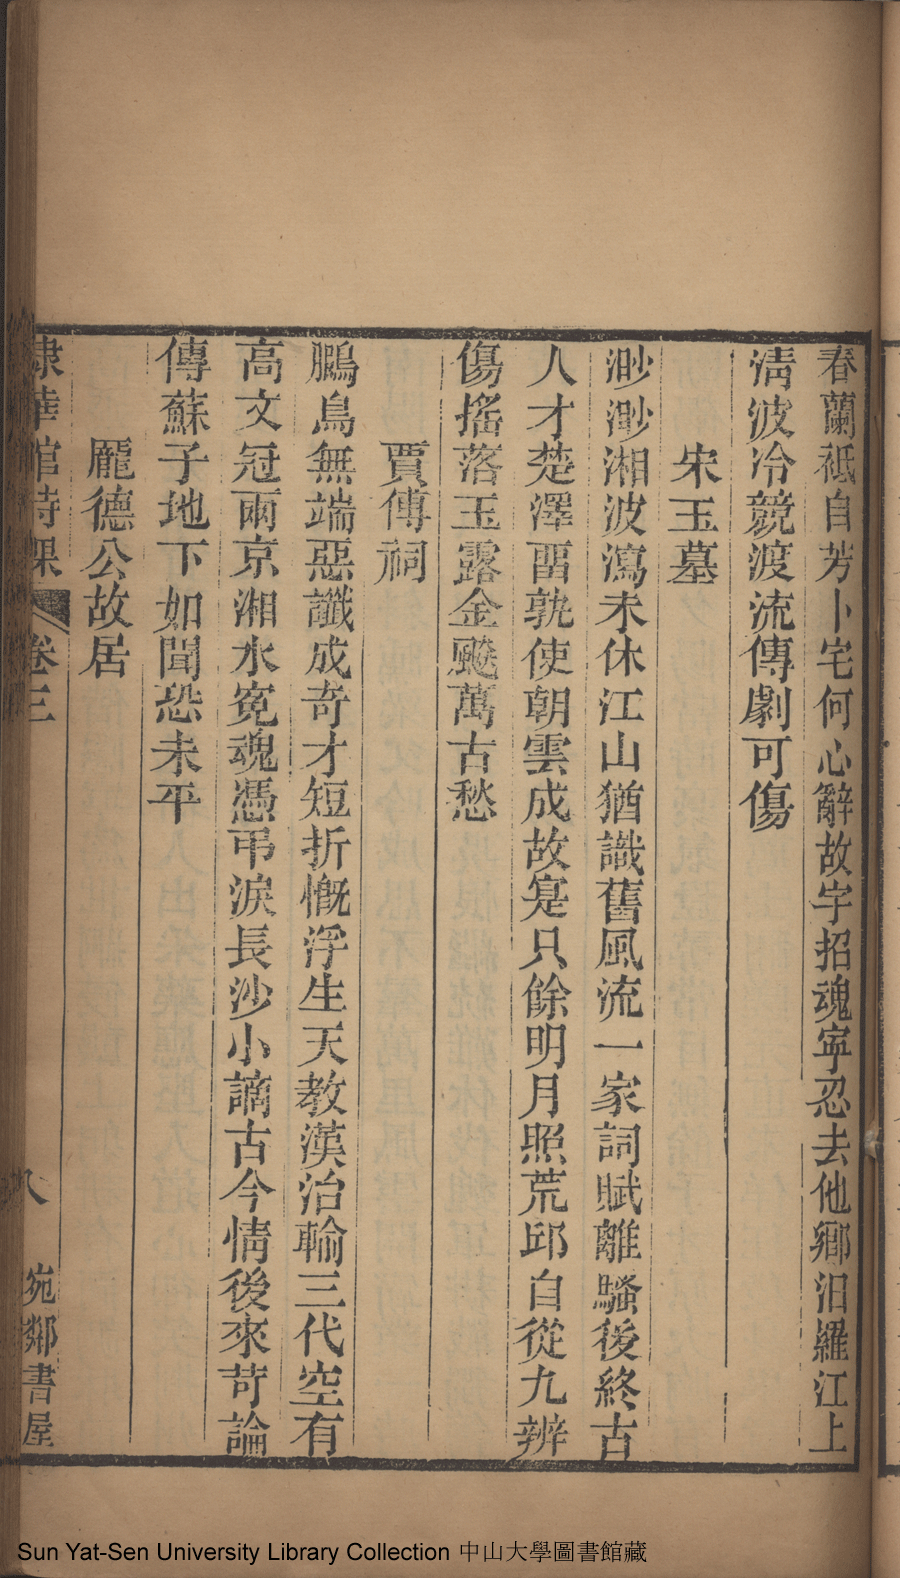 春蘭祗自芳卜宅何心辭故宇招魂寧忍去他鄉汨羅江上
清波冷競渡流傳劇可傷
宋玉墓
渺渺湘波瀉未休江山猶識舊風流一家詞賦離騷後終古
人才楚澤畱孰使朝雲成故寔只餘明月照荒邱自從九辨
傷搖落玉露金飈萬古愁
賈傅祠
鵩鳥無端惡讖成奇才短折慨浮生天教漢治輸三代空有
高文冠兩京湘水寃魂憑弔淚長沙小謫古今情後來苛論
傳蘇子地下如聞恐未平
龎德公故居
棣華館詩課 卷三 八 宛鄰書屋
Sun Yat-Sen University Library Collection 中山大學圖書館藏